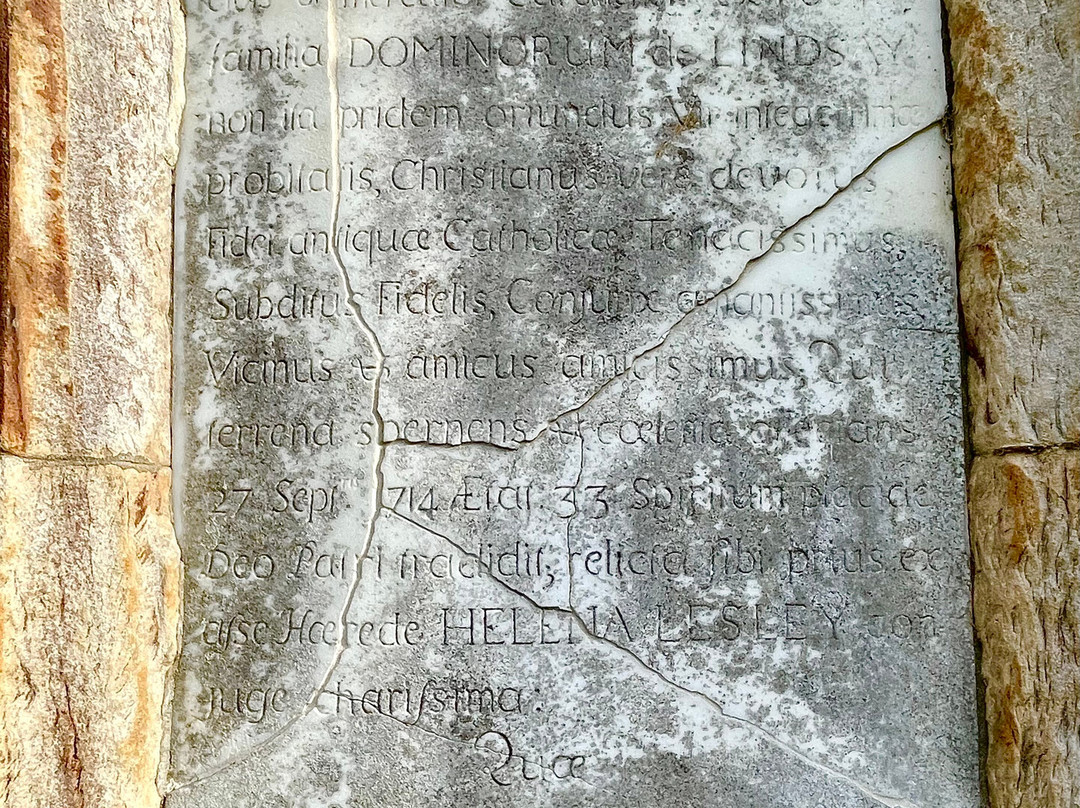 familia DOMINORUM de LINDSAY
non ita pridem oriundus Vir integerrimæ
probitatis, Christianus vere devotus,
Fidei antiquæ Catholicæ Tenacissimus,
Subditus Fidelis, Conjux amantissimus,
Vicinus & amicus amicissimus, Qui
terrena spernens et cœlestia
27 Sept. 1714 Ætat. 33 Spiritum placide
Deo Patri tradidit, relicta ſibi prius ex
aſse Hærede HELENA LESLEY con
juge chariſsima:
Quæ